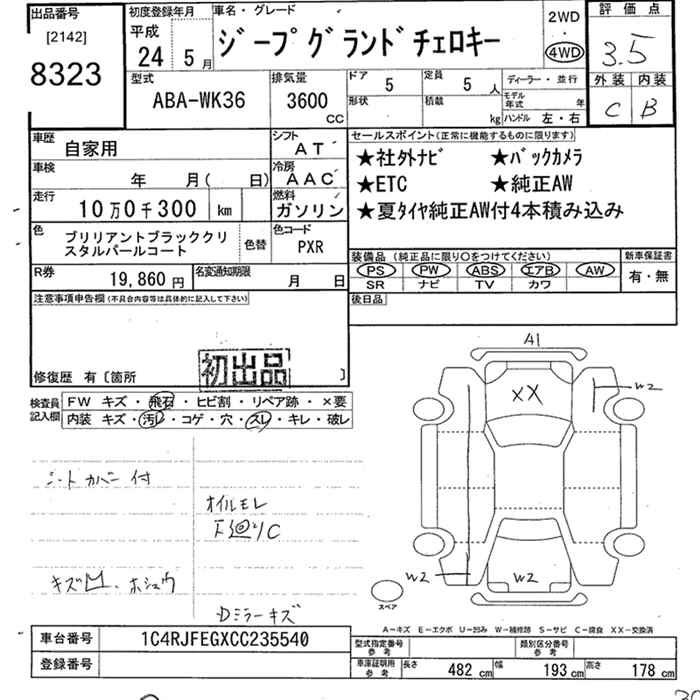 出品番号 [2142] 8323
初度登録年月 平成 24 5月
車名・グレード ジープグランドチェロキー
2WD ・ 4WD
評価点 3.5
外装 C 内装 B
型式 ABA-WK36
排気量 3600 CC
ドア 5 定員 5 人
形状 積載 kg
ディーラー・並行
モデル年式 年
ハンドル 左・右
車歴 自家用
シフト AT
車検 年 月( 日)
冷房 AAC
走行 10万0千300 km
燃料 ガソリン
色 ブリリアントブラッククリスタルパールコート 色替
色コード PXR
R券 19,860円
名変通知期限 月 日
セールスポイント(正常に機能するものに限ります)
★社外ナビ ★バックカメラ
★ETC ★純正AW
★夏タイヤ純正AW付4本積み込み
装備品 (純正品に限り○をつけてください) 新車保証書
PS PW ABS エアB AW 有・無
SR ナビ TV カワ
後日品
注意事項申告欄(不具合内容等は具体的に記入して下さい)
初出品
修復歴 有〔箇所 〕
検査員記入欄
FW キズ・飛石・ヒビ割・リペア跡・×要
内装 キズ・汚レ・コゲ・穴・スレ・キレ・破レ
シートカバー付
オイルモレ
下廻りC
キズ凹.ホシュウ
Dミラーキズ
A1
XX
W2
W2
W2
スペア
A-キズ E-エクボ U-凹み W-補修跡 S-サビ C-腐食 XX-交換済
車台番号 1C4RJFEGXCC235540
登録番号
型式指定番号参考 類別区分番号参考
車庫証明用参考 長さ 482 cm 幅 193 cm 高さ 178 cm